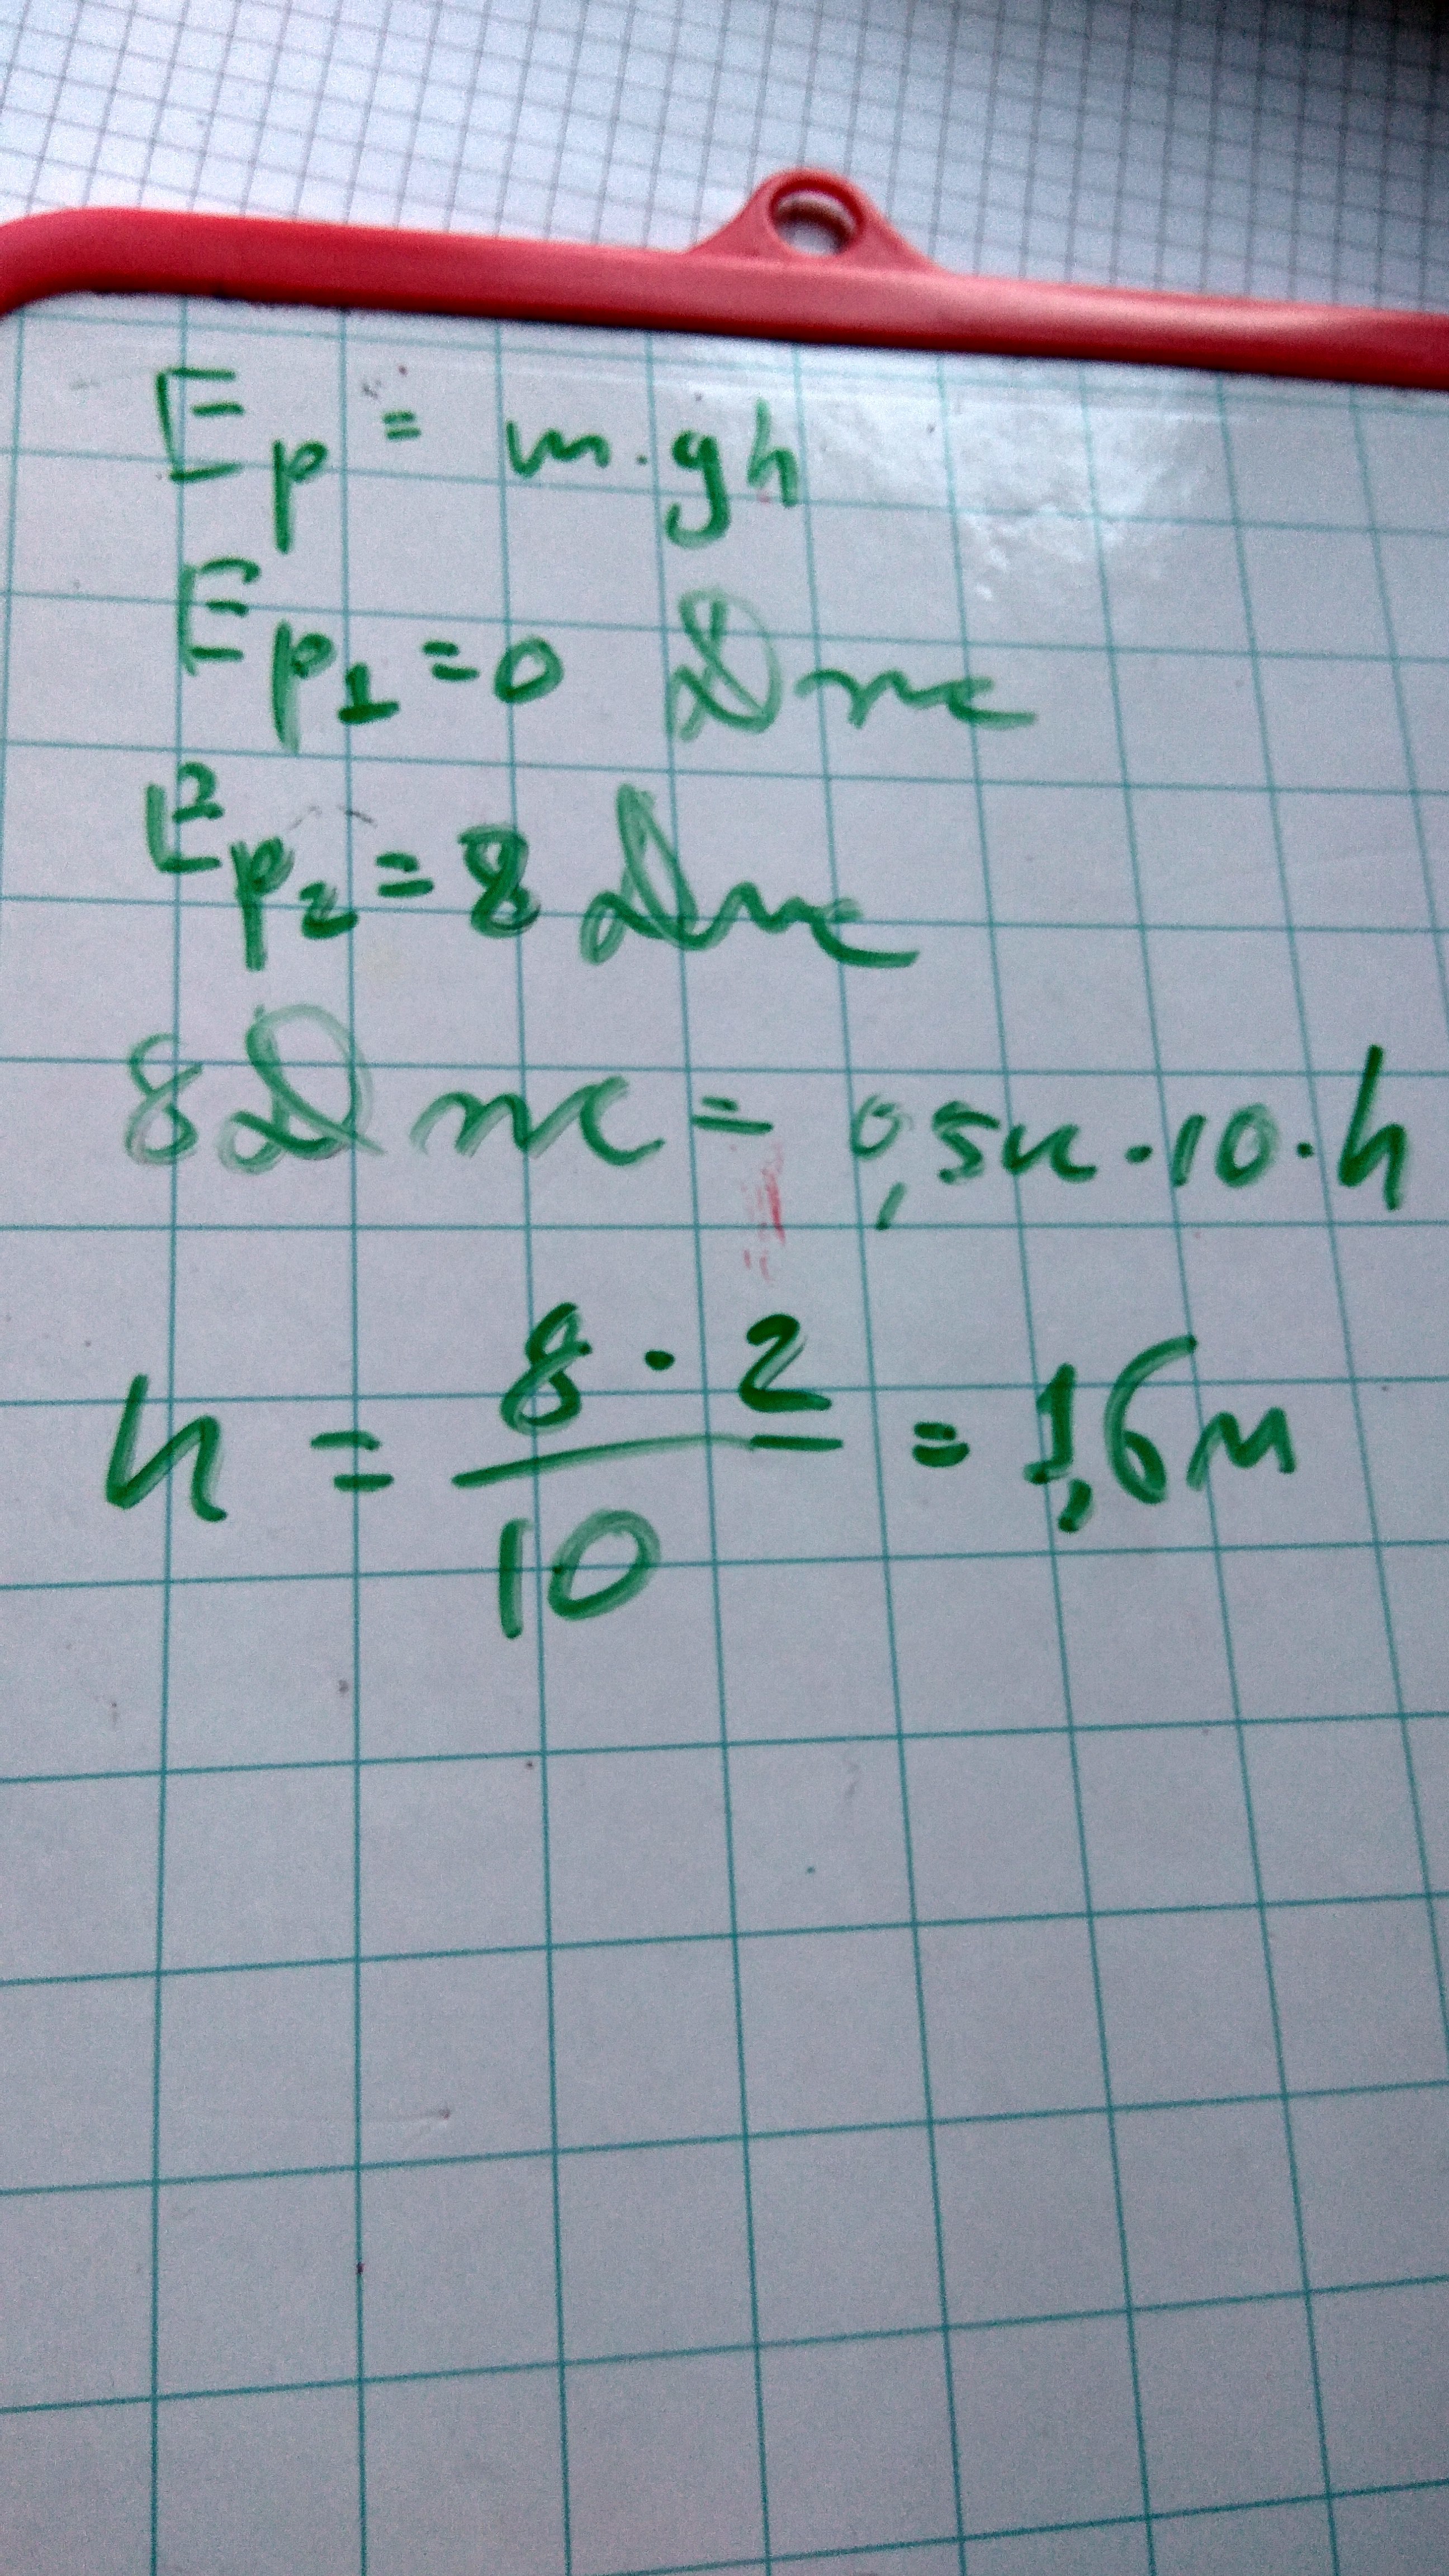 Ep = m·gh
Ep1 = 0 Дж
Ep2 = 8 Дж
8 Дж = 0,5к·10·h
h = 8·2/10 = 1,6м